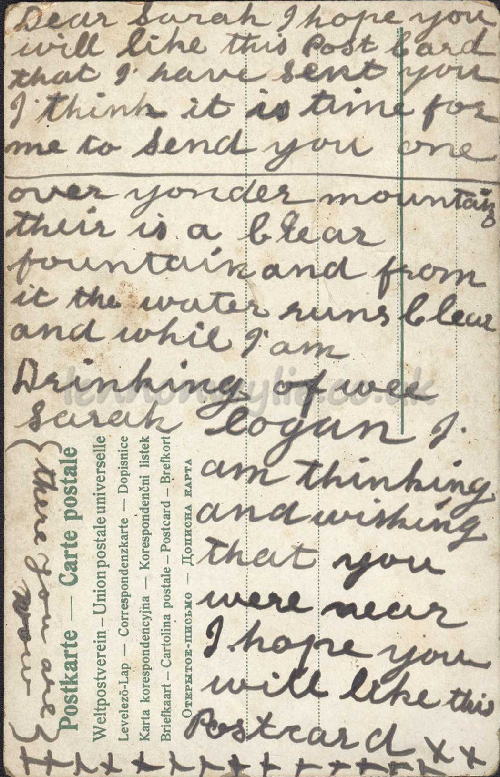 Dear Sarah I hope you
will like this Post Card
that I have sent you
I think it is time for
me to send you one
over yonder mountain
their is a Clear
fountain and from
it the water runs Clear
and whil I am
Drinking of wee
Sarah Logan I
am thinking
and wishing
that you
were near
I hope you
will like this
Postcard x x
{there you are}
now
Postkarte — Carte postale
Weltpostverein – Union postale universelle
Levelező-Lap — Correspondenzkarte — Dopisnice
Karta korespondencyjna — Korespondenční lístek
Briefkaart – Cartolina postale – Postcard – Brefkort
Открытое-письмо — Дописна карта
lennonwylie.co.uk